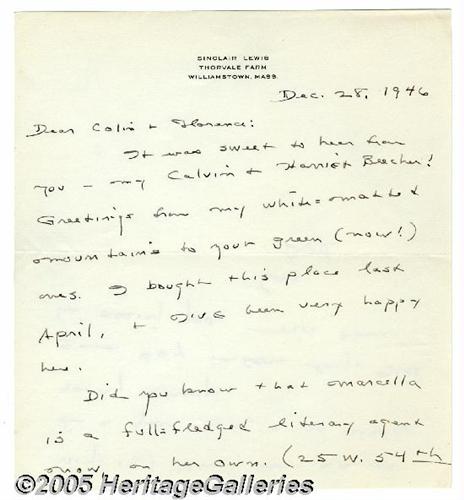 SINCLAIR LEWIS
THORVALE FARM
WILLIAMSTOWN, MASS.
Dec. 28, 1946
Dear Colin + Florence:
It was sweet to hear from
you – my Calvin + Harriet Beecher!
Greetings from my white-matted
mountains to your green (now!)
ones. I bought this place last
April, + have been very happy
here.
Did you know that Marcella
is a full-fledged literary agent
now, on her own. (25 W. 54th
©2005 HeritageGalleries